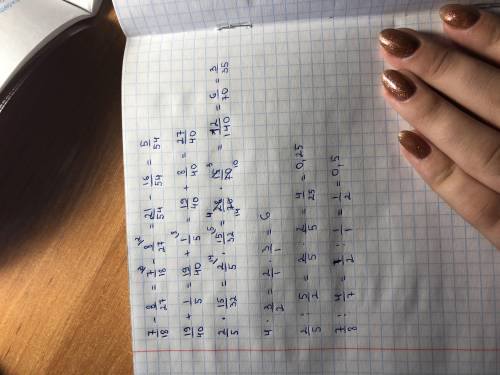 7/18 - 8/27 = 7/18 - 8/27 = 21/54 - 16/54 = 5/54
19/40 + 1/5 = 19/40 + 1/5 = 19/40 + 8/40 = 27/40
2/5 · 15/32 = 2/5 · 15/32 = = 12/140 = 6/70 = 3/35
4 · 3/2 = 2/1 · 3/1 = 6
2/5 : 5/2 = 2/5 · 2/5 = 4/25 = 0,25
7/8 : 4/7 = /2 · 1/1 = 1/2 = 0,5